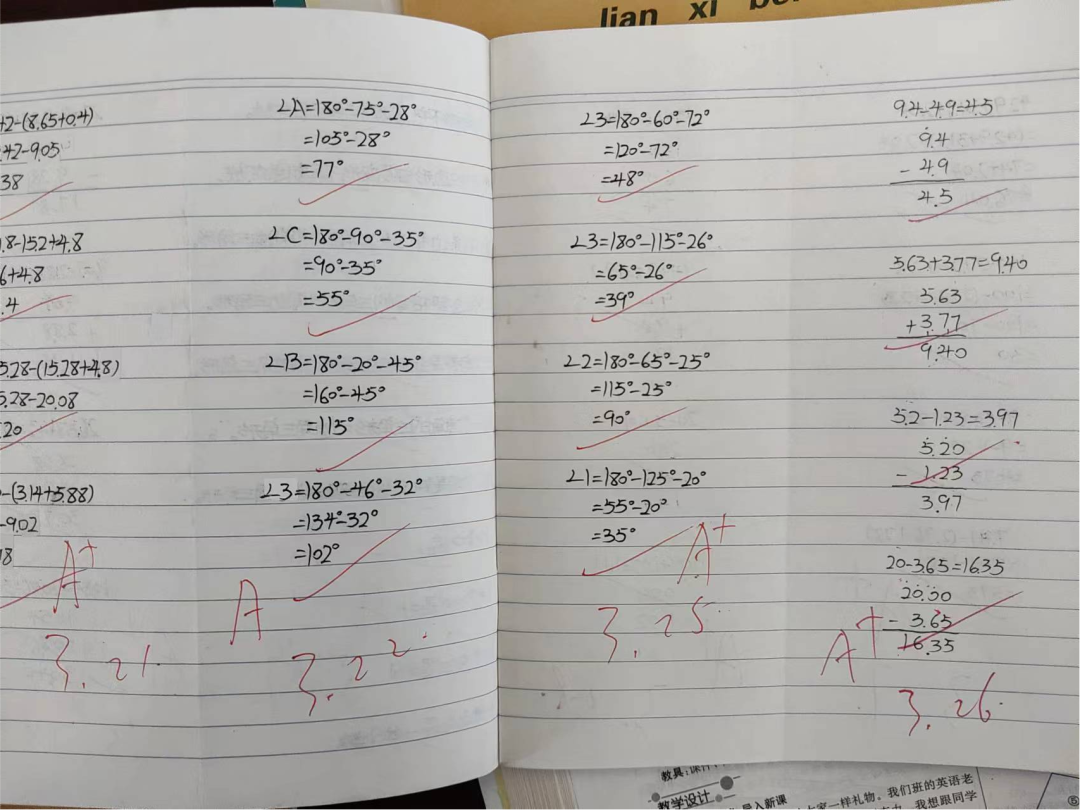 lian xi
+2-(8.65+0.4)
.42-9.05
38
1.8-15.2+4.8
6+4.8
.4
5.28-(15.28+4.8)
5.28-20.08
.20
-(3.14+5.88)
-9.02
18
A+
3.21
∠A=180°-75°-28°
=105°-28°
=77°
∠C=180°-90°-35°
=90°-35°
=55°
∠B=180°-20°-45°
=160°-45°
=115°
∠3=180°-46°-32°
=134°-32°
=102°
A
3.22
∠3=180°-60°-72°
=120°-72°
=48°
∠3=180°-115°-26°
=65°-26°
=39°
∠2=180°-65°-25°
=115°-25°
=90°
∠1=180°-125°-20°
=55°-20°
=35°
A+
3.25
9.4-4.9=4.5
9.4
- 4.9
4.5
5.63+3.77=9.40
5.63
+3.77
9.40
5.2-1.23=3.97
5.20
- 1.23
3.97
20-3.65=16.35
20.00
- 3.65
16.35
A+
3.26
教具:课件
教学设计
导入新课
一样礼物。我们班的英语老
我想跟同学